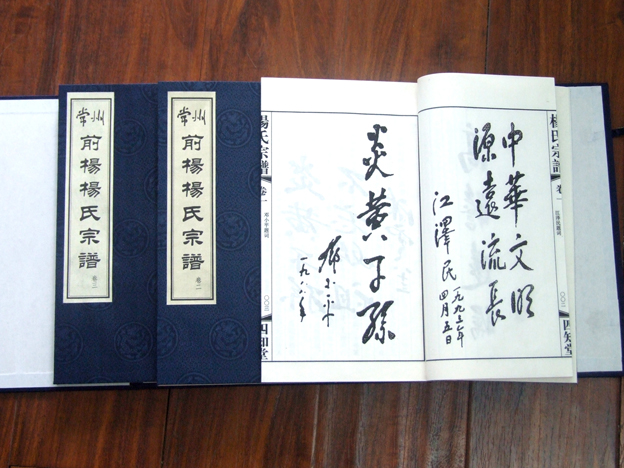 楊氏宗譜
卷一
江澤民題詞
四知堂
中華文明
源遠流長
江澤民
一九九三年
四月五日
炎黃子孫
鄧小平
楊氏宗譜
卷一
鄧小平題詞
四知堂
常州
前楊楊氏宗譜
卷二
常州
前楊楊氏宗譜
卷三